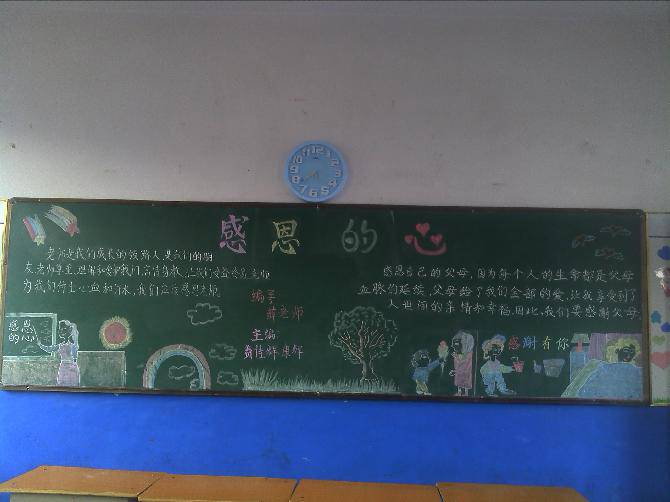 感恩的心
老师是我们成长的领路人,是我们的朋
友,老师尊重,理解和爱护我们
为我们付出心血和汗水,我们应该感恩老师
感恩自己的父母,因为每个人的生命都是父母
血脉的延续,父母给了我们全部的爱,让我享受到了
人世间的亲情和幸福,因此,我们要感谢父母
编导
薛老师
主编
感恩
的心
感谢有你
12
1
2
3
4
5
6
7
8
9
10
11